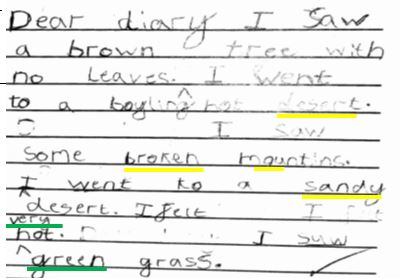 Dear diary I saw
a brown tree with
no leaves. I went
to a boyling hot desert.
I saw
some broken mountins.
I went to a sandy
desert. I felt I felt
very
hot. I saw
green grass.